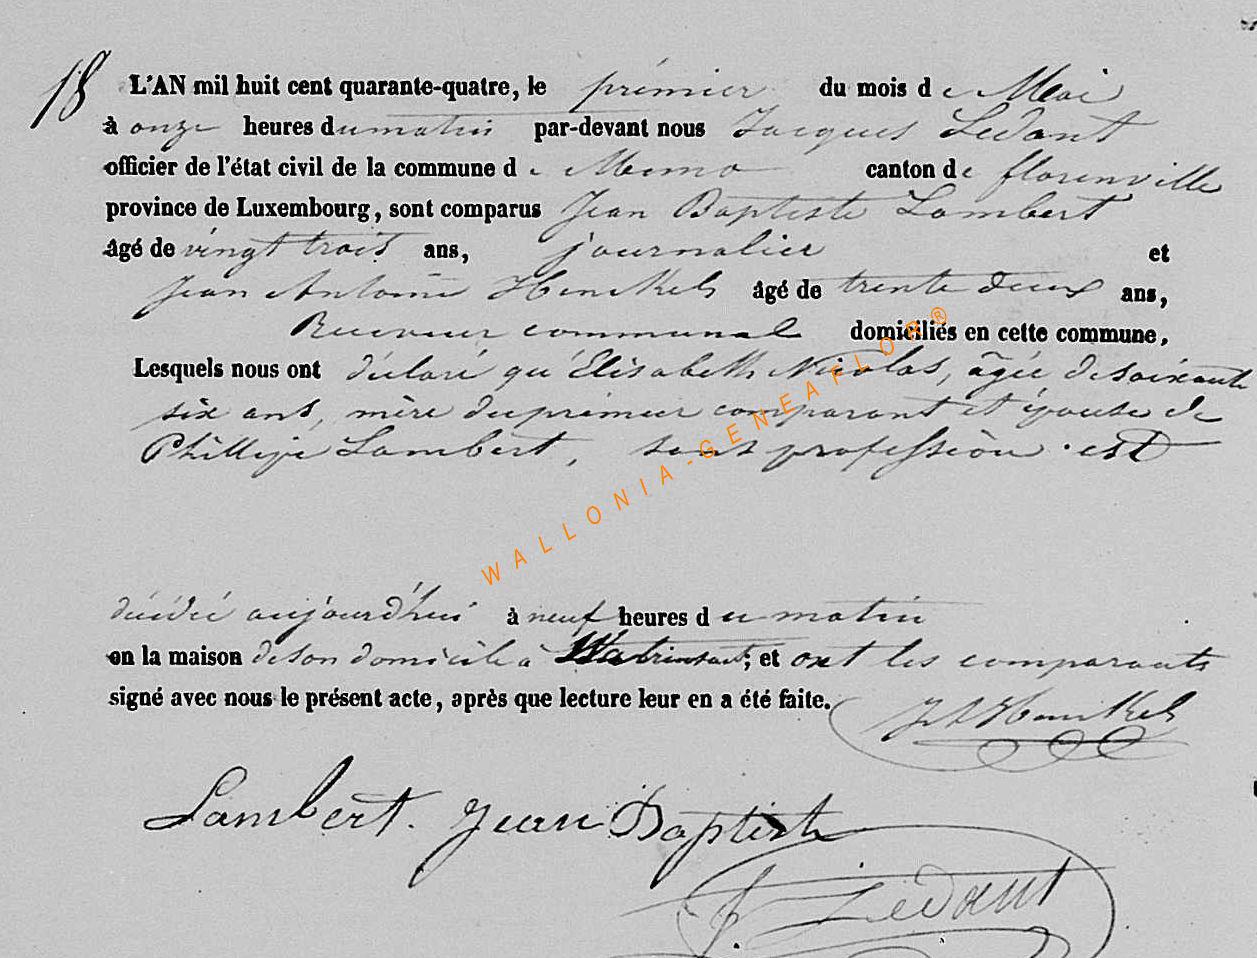 18
L'AN mil huit cent quarante-quatre, le prémier du mois de Mai
à onze heures du matin par-devant nous Jacques Ledant
officier de l'état civil de la commune de Muno canton de florenville
province de Luxembourg, sont comparus Jean Baptiste Lambert
âgé de vingt trois ans, journalier et
Jean Antoine Henckels âgé de trente deux ans,
Receveur communal domiciliés en cette commune,
Lesquels nous ont déclaré qu'Élisabeth Nicolas, âgée de soixante
six ans, mère du prémier comparant et épouse de
Phillipe Lambert, sans profession est
WALLONIA-GENEAFLOR®
décédée aujourd'hui à neuf heures du matin
en la maison de son domicile à Watrinsart; et ont les comparants
signé avec nous le présent acte, après que lecture leur en a été faite.
JA Henckels
Lambert. Jean Baptiste
J. Ledant